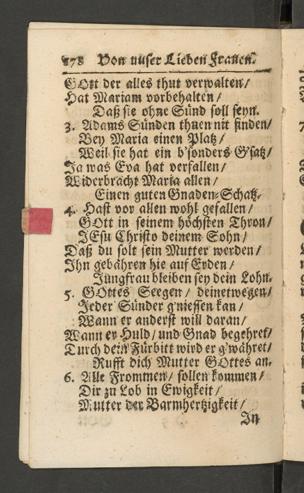 278 Von unser Lieben Frauen.
GOtt der alles thut verwalten/
Hat Mariam vorbehalten/
Daß sie ohne Sünd soll seyn.
3. Adams Sünden thuen nit finden/
Bey Maria einen Platz/
Weil sie hat ein b'sonders G'satz/
Ja was Eva hat verfallen/
Widerbracht Maria allen/
Einen guten Gnaden-Schatz.
4. Hast vor allen wohl gefallen/
GOtt in seinem höchsten Thron/
JEsu Christo deinem Sohn/
Daß du solt sein Mutter werden/
Ihn gebähren hie auf Erden/
Jungfrau bleiben sey dein Lohn.
5. GOttes Seegen/ deinetwegen/
Jeder Sünder g'niessen kan/
Wann er anderst will daran/
Wann er Huld/ und Gnad begehret/
Durch dein Fürbitt wird er g'währet/
Rufft dich Mutter GOttes an.
6. Alle Frommen/ sollen kommen/
Dir zu Lob in Ewigkeit/
Mutter der Barmhertzigkeit/
In